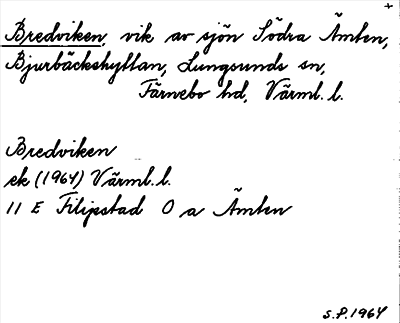 +
Bredviken, vik av sjön Södra Ämten,
Bjurbäckshyttan, Lungsunds sn,
Färnebo hd, Värml. l.
Bredviken
ek (1964) Värml. l.
11 E Filipstad O a Ämten
S.P. 1964